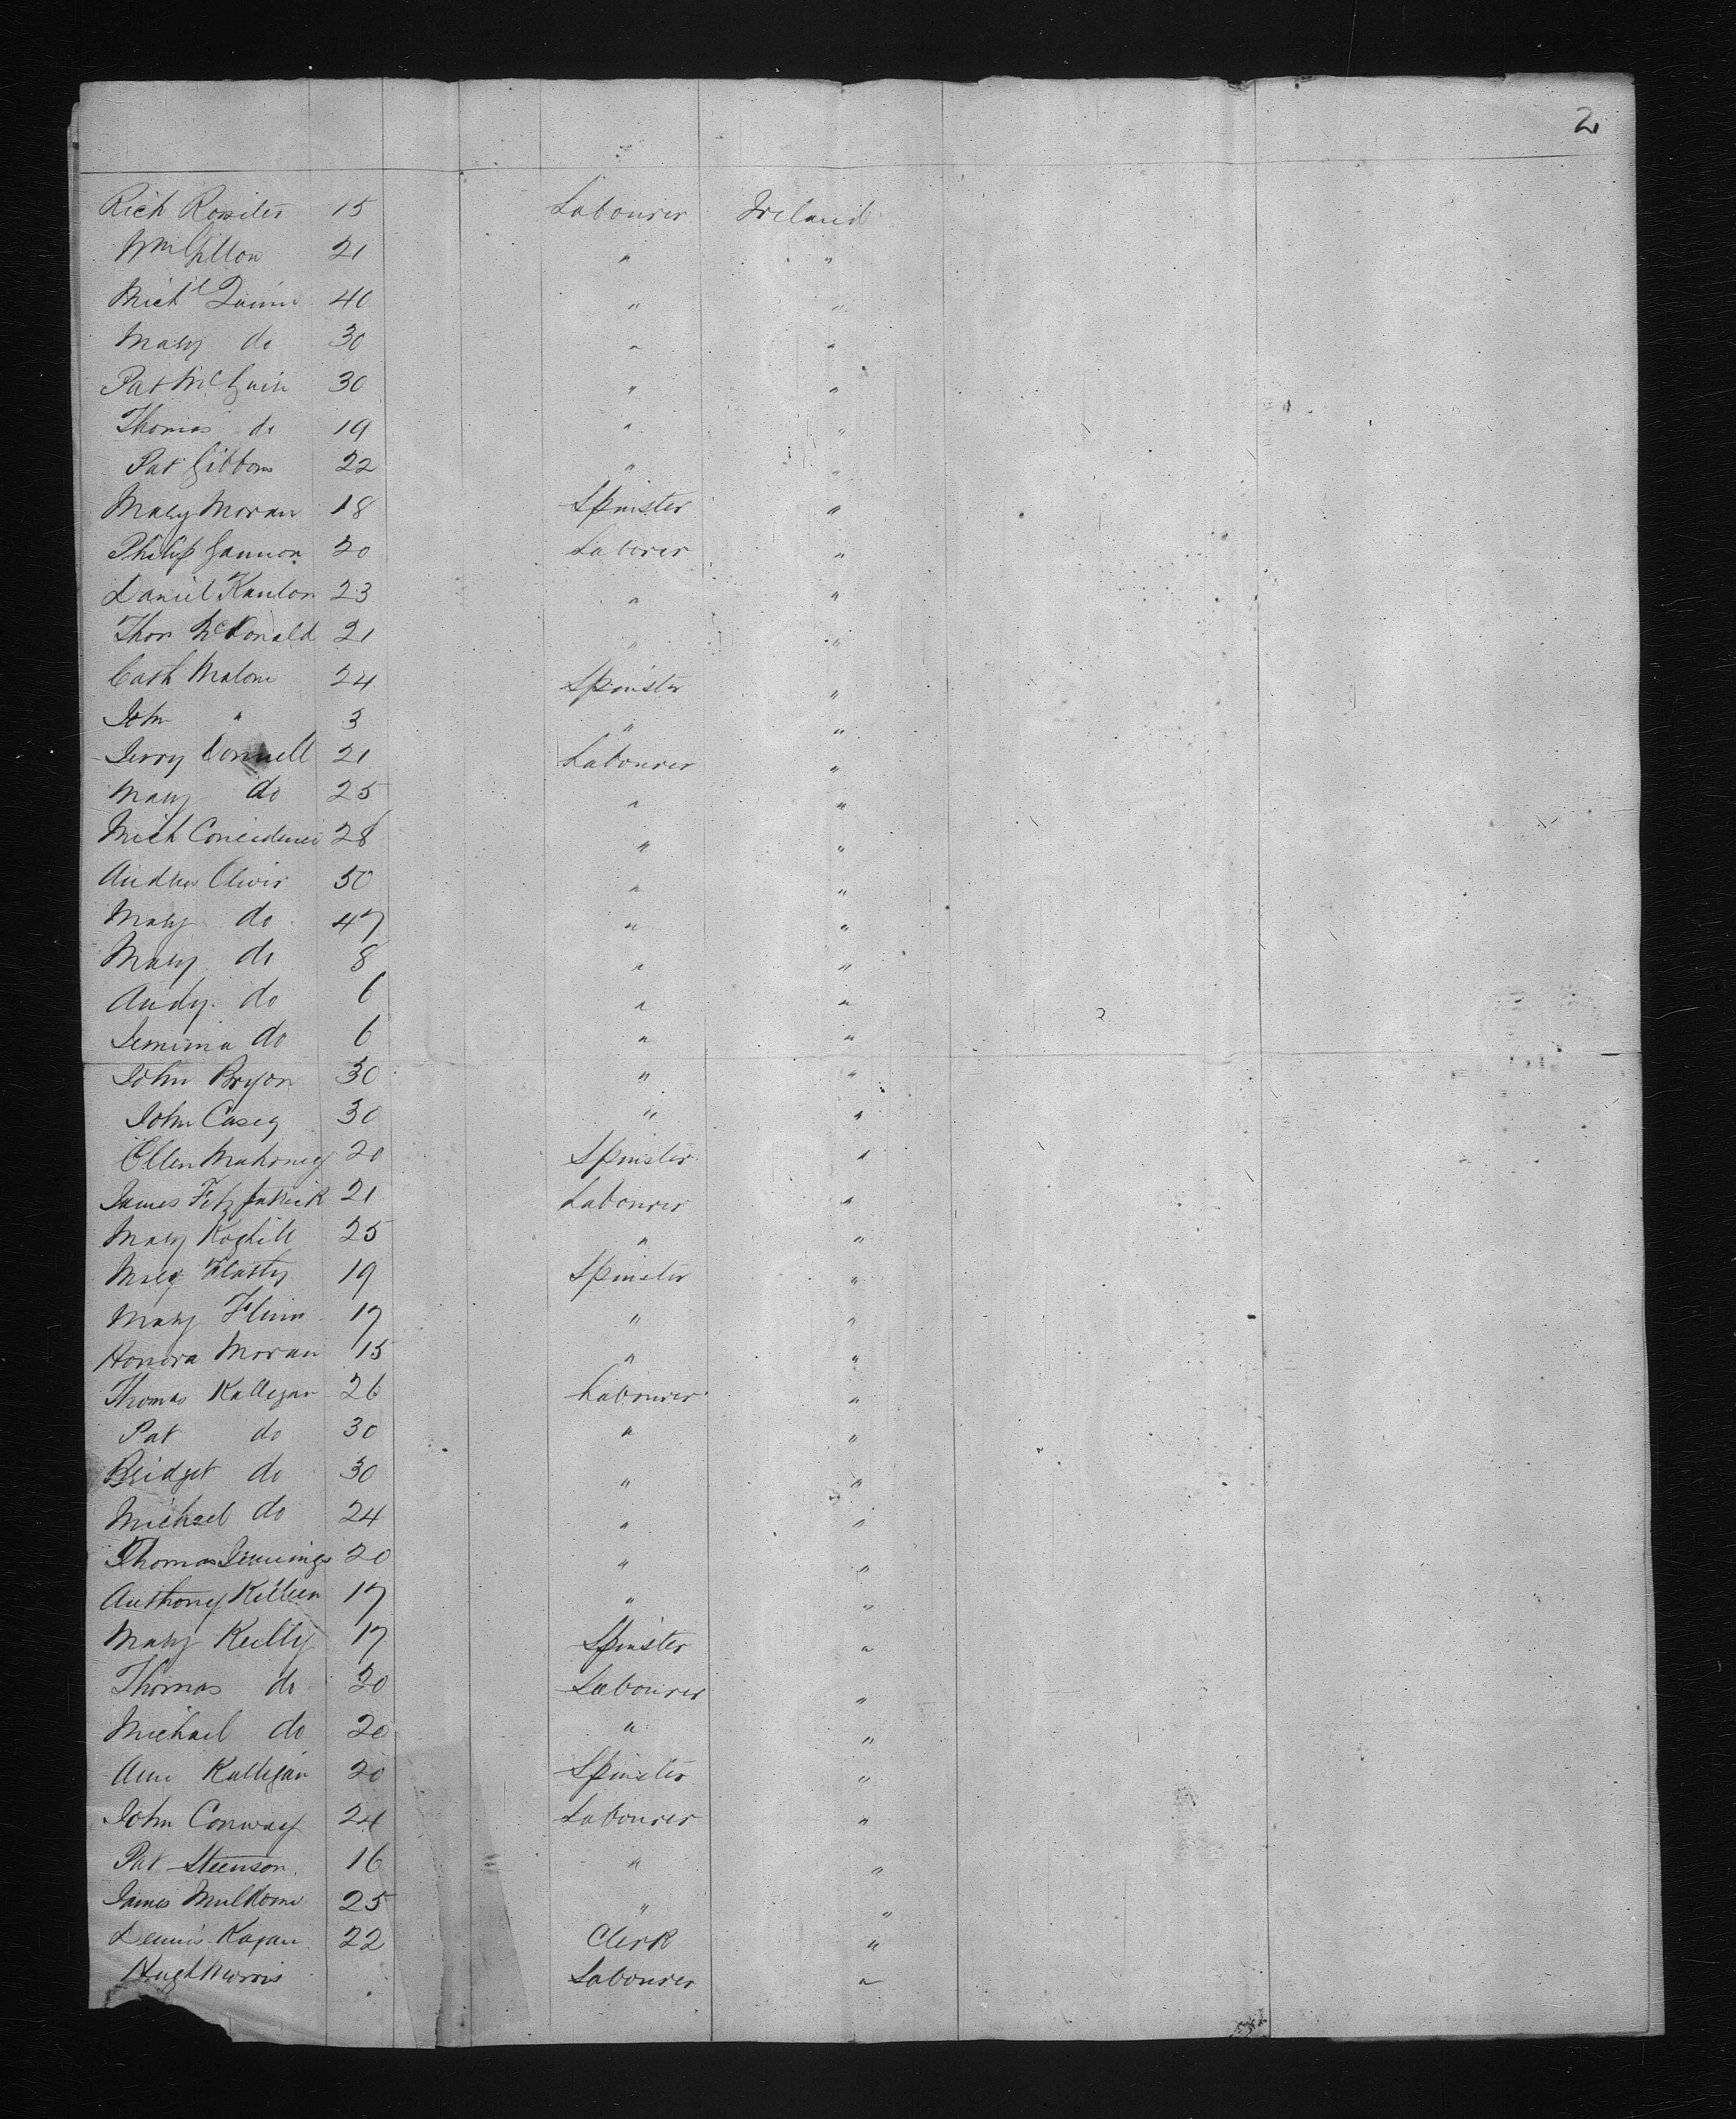 2
Rich Rossiter 15 Labourer Ireland
Wm Gillon 21 " "
Mich'l Quinn 40 " "
Mary do 30 " "
Pat McGuin 30 " "
Thomas do 19 " "
Pat Gibbons 22 " "
Mary Moran 18 Spinster "
Philip Gannon 20 Laborer "
Daniel Kanlon 23 " "
Thos McDonald 21 " "
Cath Malone 24 Spinster "
John " 3 " "
Jerry Connell 21 Labourer "
Mary do 25 " "
Mich 28 " "
Andrew Oliver 50 " "
Mary do 47 " "
Mary do 8 " "
Andy. do 6 " "
Jemima do 6 " "
John Bryon 30 " "
John Casey 30 " "
Ellen Mahoney 20 Spinster "
James Fitzpatrick 21 Labourer "
Mary Koghill 25 " "
Mary Flatty 19 Spinster "
Mary Flinn 17 " "
Honora Moran 15 " "
Thomas Kalligan 26 Labourer "
Pat do 30 " "
Bridget do 30 " "
Michael do 24 " "
Thomas Jennings 20 " "
Anthony Killeen 17 " "
Mary Keilly 17 Spinster "
Thomas do 20 Labourer "
Michael do 20 " "
Ann Kalligan 20 Spinster "
John Conway 24 Labourer "
Pat Steenson. 16 " "
James Muldoone 25 " "
Dennis Kagan 22 Clerk "
Hugh Morris Labourer "